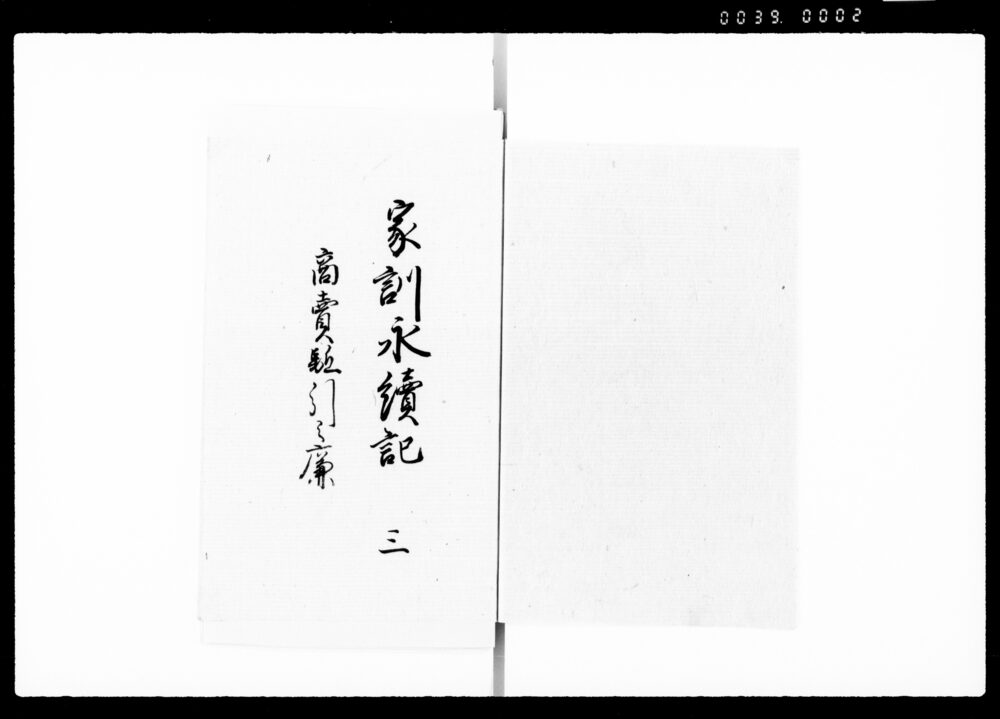 0039. 0002
家訓永續記 三
商賣駈引之廉